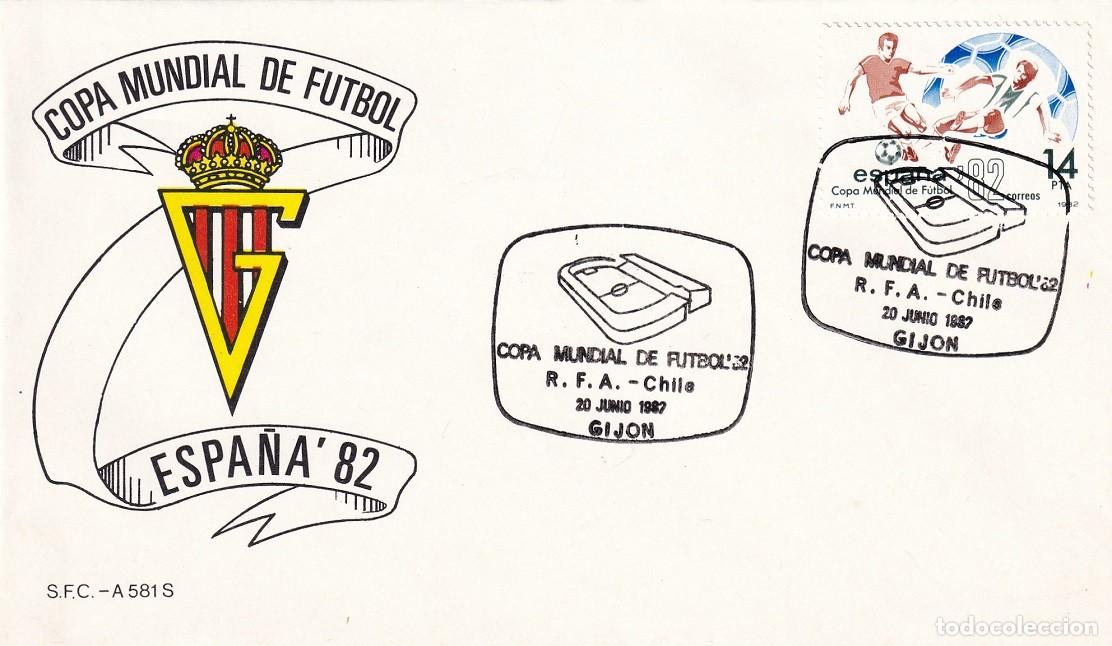 COPA MUNDIAL DE FUTBOL
ESPAÑA '82
S.F.C. - A 581 S
COPA MUNDIAL DE FUTBOL'82
R. F. A. - Chile
20 JUNIO 1982
GIJON
españa '82
14
PTA
Copa Mundial de Fútbol
correos
F.N.M.T.
1982
COPA MUNDIAL DE FUTBOL'82
R. F. A. - Chile
20 JUNIO 1982
GIJON
todocoleccion